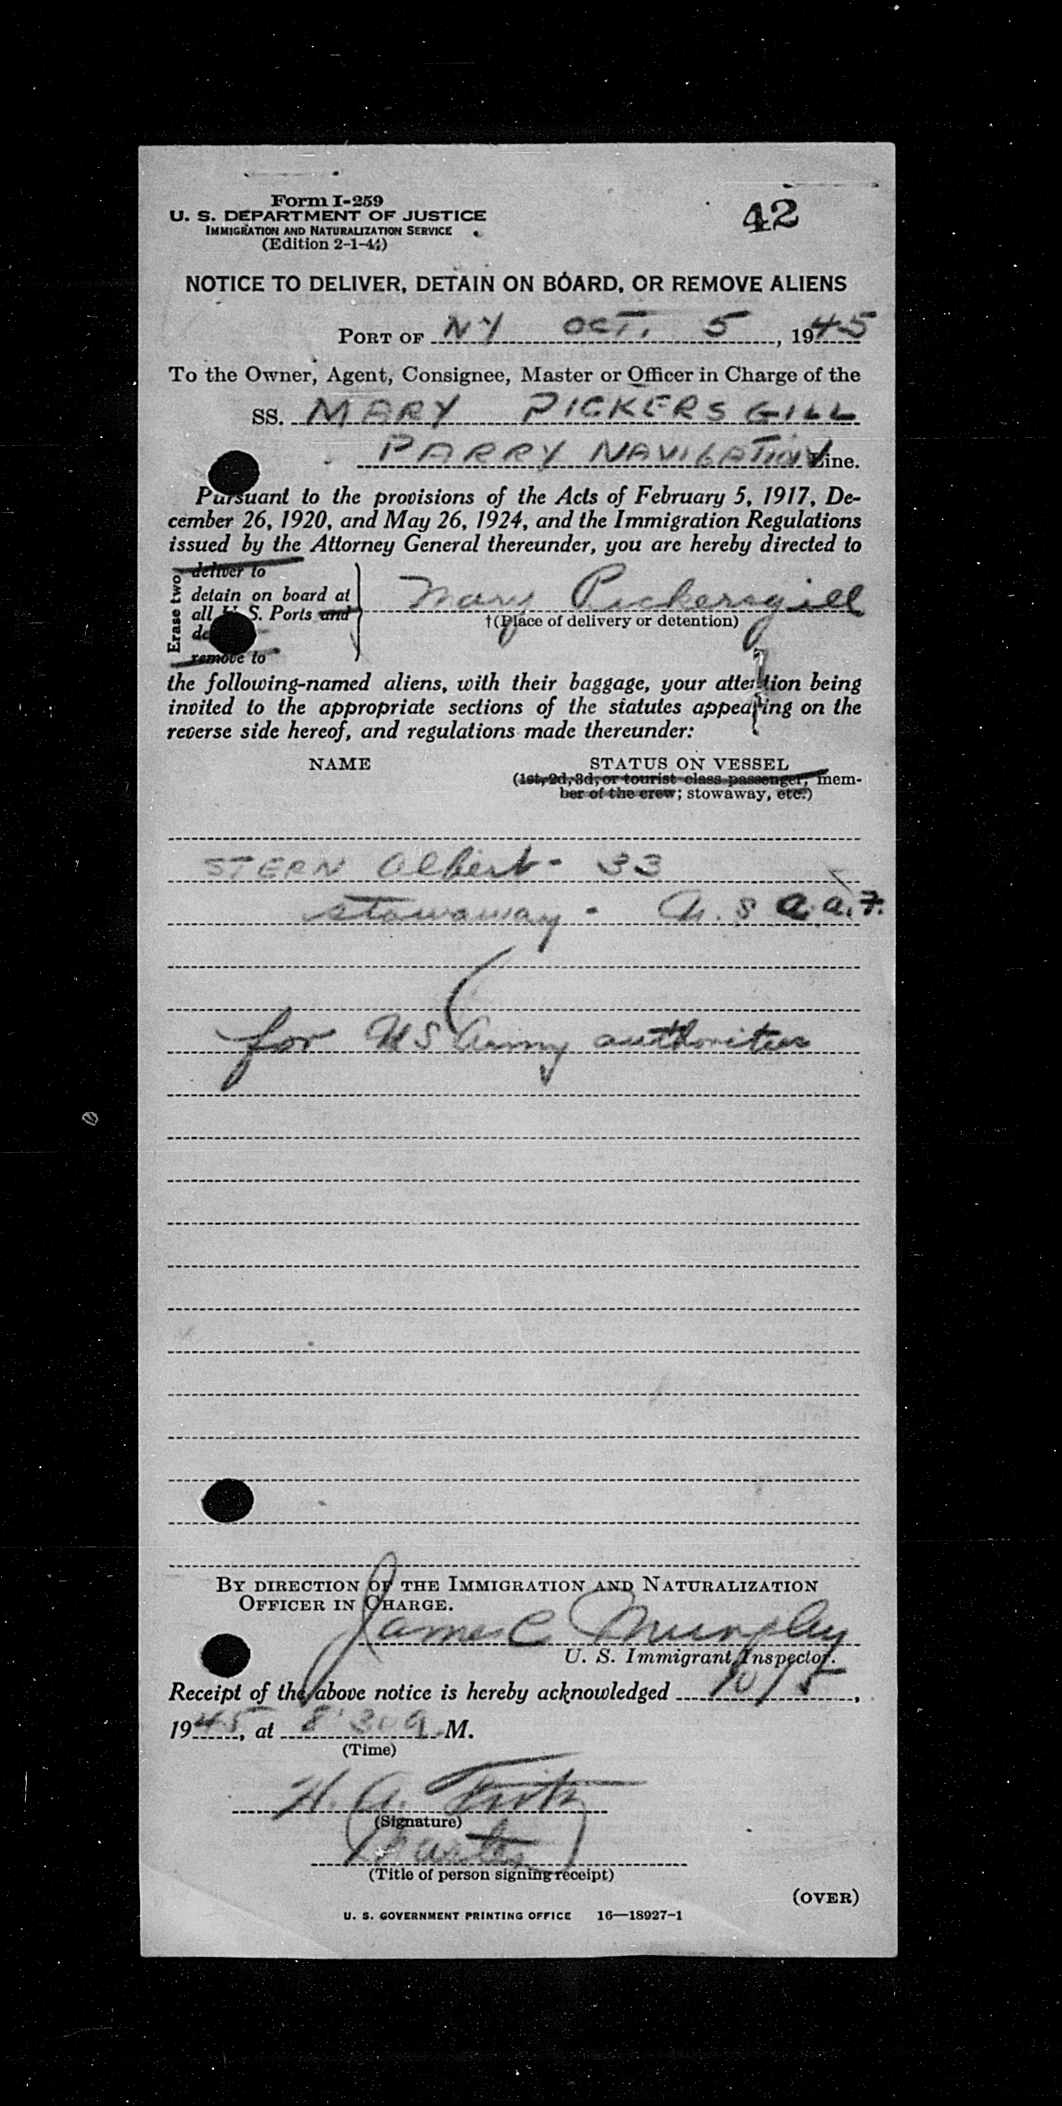 Form I-259
U. S. DEPARTMENT OF JUSTICE
IMMIGRATION AND NATURALIZATION SERVICE
(Edition 2-1-44)
42
NOTICE TO DELIVER, DETAIN ON BOARD, OR REMOVE ALIENS
PORT OF NY OCT. 5, 1945
To the Owner, Agent, Consignee, Master or Officer in Charge of the
SS. MARY PICKERSGILL
PARRY NAVIGATION Line.
Pursuant to the provisions of the Acts of February 5, 1917, De-
cember 26, 1920, and May 26, 1924, and the Immigration Regulations
issued by the Attorney General thereunder, you are hereby directed to
Erase two
deliver to
detain on board at
all U. S. Ports and
remove to
Mary Pickersgill
†(Place of delivery or detention)
the following-named aliens, with their baggage, your attention being
invited to the appropriate sections of the statutes appearing on the
reverse side hereof, and regulations made thereunder:
NAME STATUS ON VESSEL
(1st, 2d, 3d, or tourist class passenger, mem-
ber of the crew; stowaway, etc.)
STERN Albert - 33
stowaway - U. S A. A. F.
for US Army authorities
BY DIRECTION OF THE IMMIGRATION AND NATURALIZATION
OFFICER IN CHARGE.
James C Murphy
U. S. Immigrant Inspector.
Receipt of the above notice is hereby acknowledged 10/5,
1945, at 8:30 a M.
(Time)
H. A.
(Signature)
Master
(Title of person signing receipt)
(OVER)
U. S. GOVERNMENT PRINTING OFFICE 16—18927-1